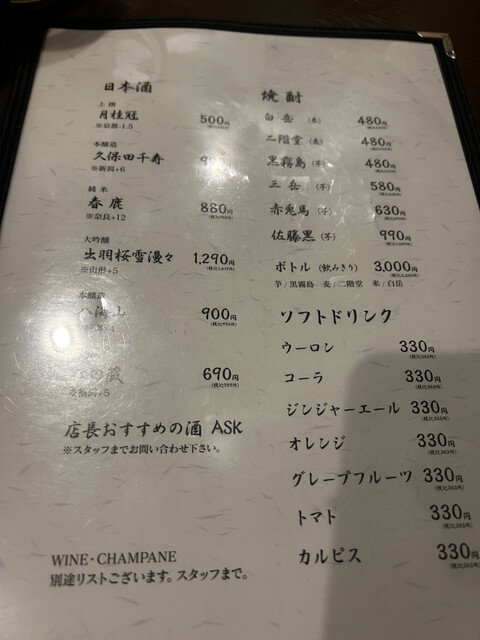 日本酒
上撰
月桂冠 500円
※京都-1.5
本醸造
久保田千寿
※新潟+6
純米
春鹿 880円
※奈良+12
大吟醸
出羽桜雪漫々 1,290円
※山形+5
本醸造
八海山 900円
の蔵 690円
+5
店長おすすめの酒 ASK
※スタッフまでお問い合わせ下さい。
WINE・CHAMPANE
別途リストございます。スタッフまで。
焼酎
白岳 (米) 480円
二階堂 (麦) 480円
黒霧島 (芋) 480円
三岳 (芋) 580円
赤兎馬 (芋) 630円
佐藤黒 (芋) 990円
ボトル (飲みきり) 3,000円
芋/黒霧島 麦/二階堂 米/白岳
ソフトドリンク
ウーロン 330円
(税込363円)
コーラ 330円
(税込363円)
ジンジャーエール 330円
(税込363円)
オレンジ 330円
(税込363円)
グレープフルーツ 330円
(税込363円)
トマト 330円
(税込363円)
カルピス 330円
(税込363円)